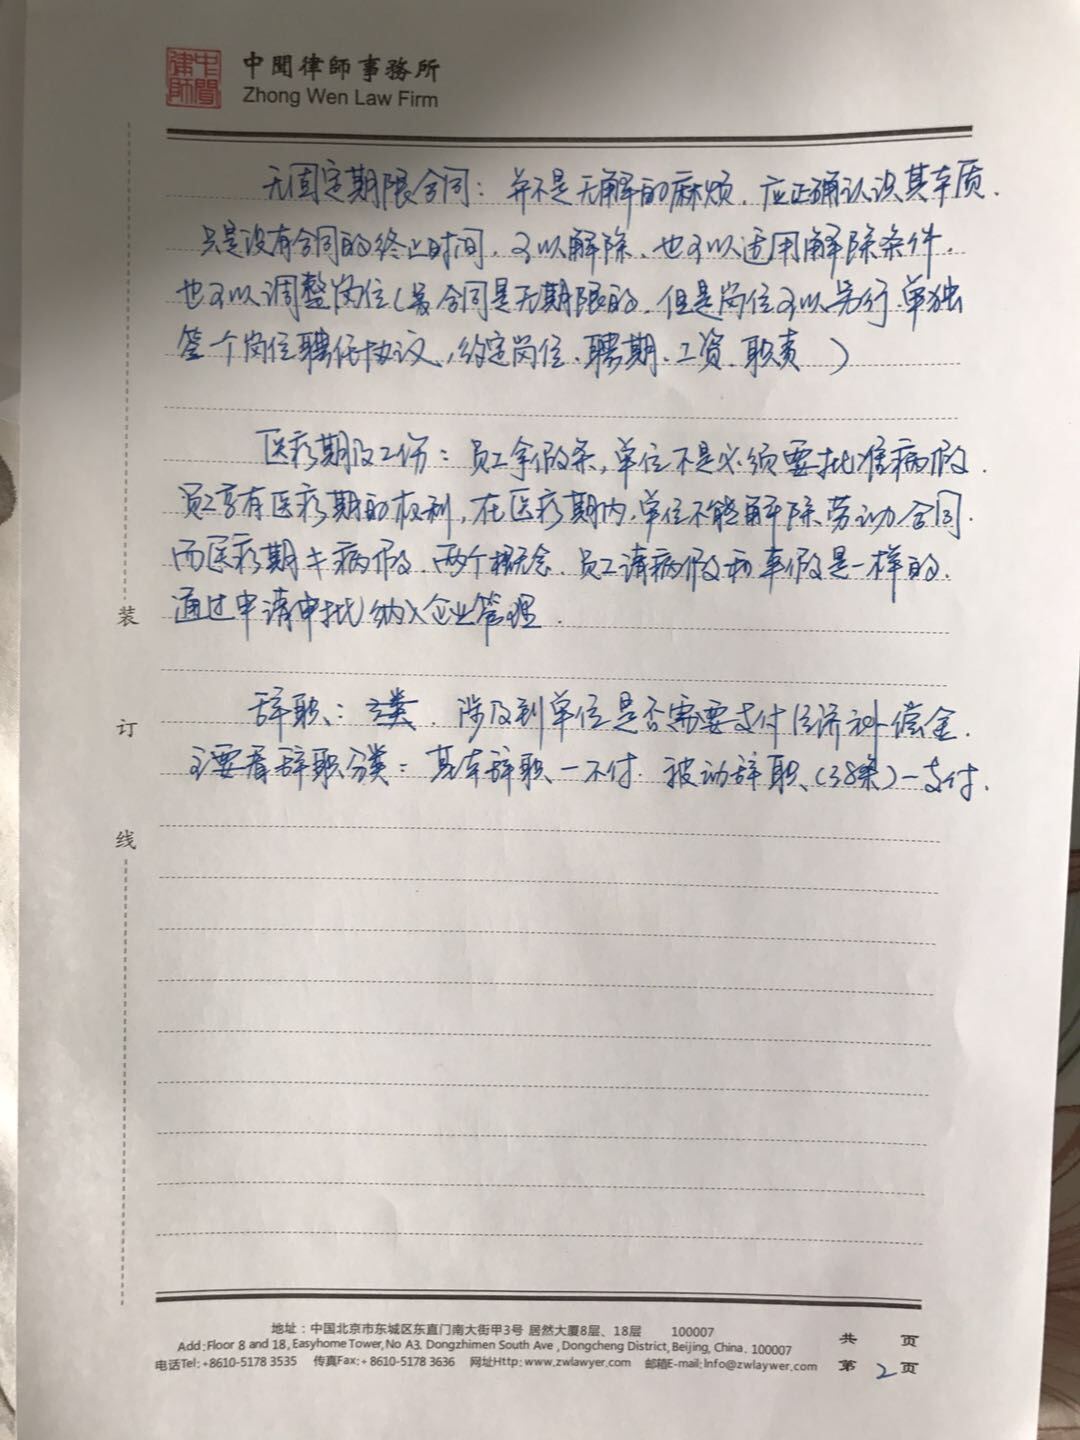 中聞律師
中聞律師事務所
Zhong Wen Law Firm
无固定期限合同：并不是无解的麻烦．应正确认识其本质．
只是没有合同的终止时间．可以解除、也可以适用解除条件．
也可以调整岗位（合同是无期限的．但是岗位可以另行．单独
签个岗位聘任协议，约定岗位．聘期．工资．职责）
医疗期及工伤：员工拿假条，单位不是必须要批准病假．
员工享有医疗期的权利，在医疗期内，单位不能解除劳动合同．
而医疗期≠病假．两个概念．员工请病假和事假是一样的．
通过申请审批纳入企业管理．
辞职：类．涉及到单位是否需要支付经济补偿金．
主要看辞职分类：基本辞职—不付．被动辞职（38条）—支付．
装
订
线
地址：中国北京市东城区东直门南大街甲3号 居然大厦8层、18层 100007
Add:Floor 8 and 18,Easyhome Tower,No A3. Dongzhimen South Ave,Dongcheng District,Beijing,China. 100007
电话Tel:+8610-5178 3535 传真Fax:+8610-5178 3636 网址Http:www.zwlawyer.com 邮箱E-mail:Info@zwlaywer.com
共 页
第2页